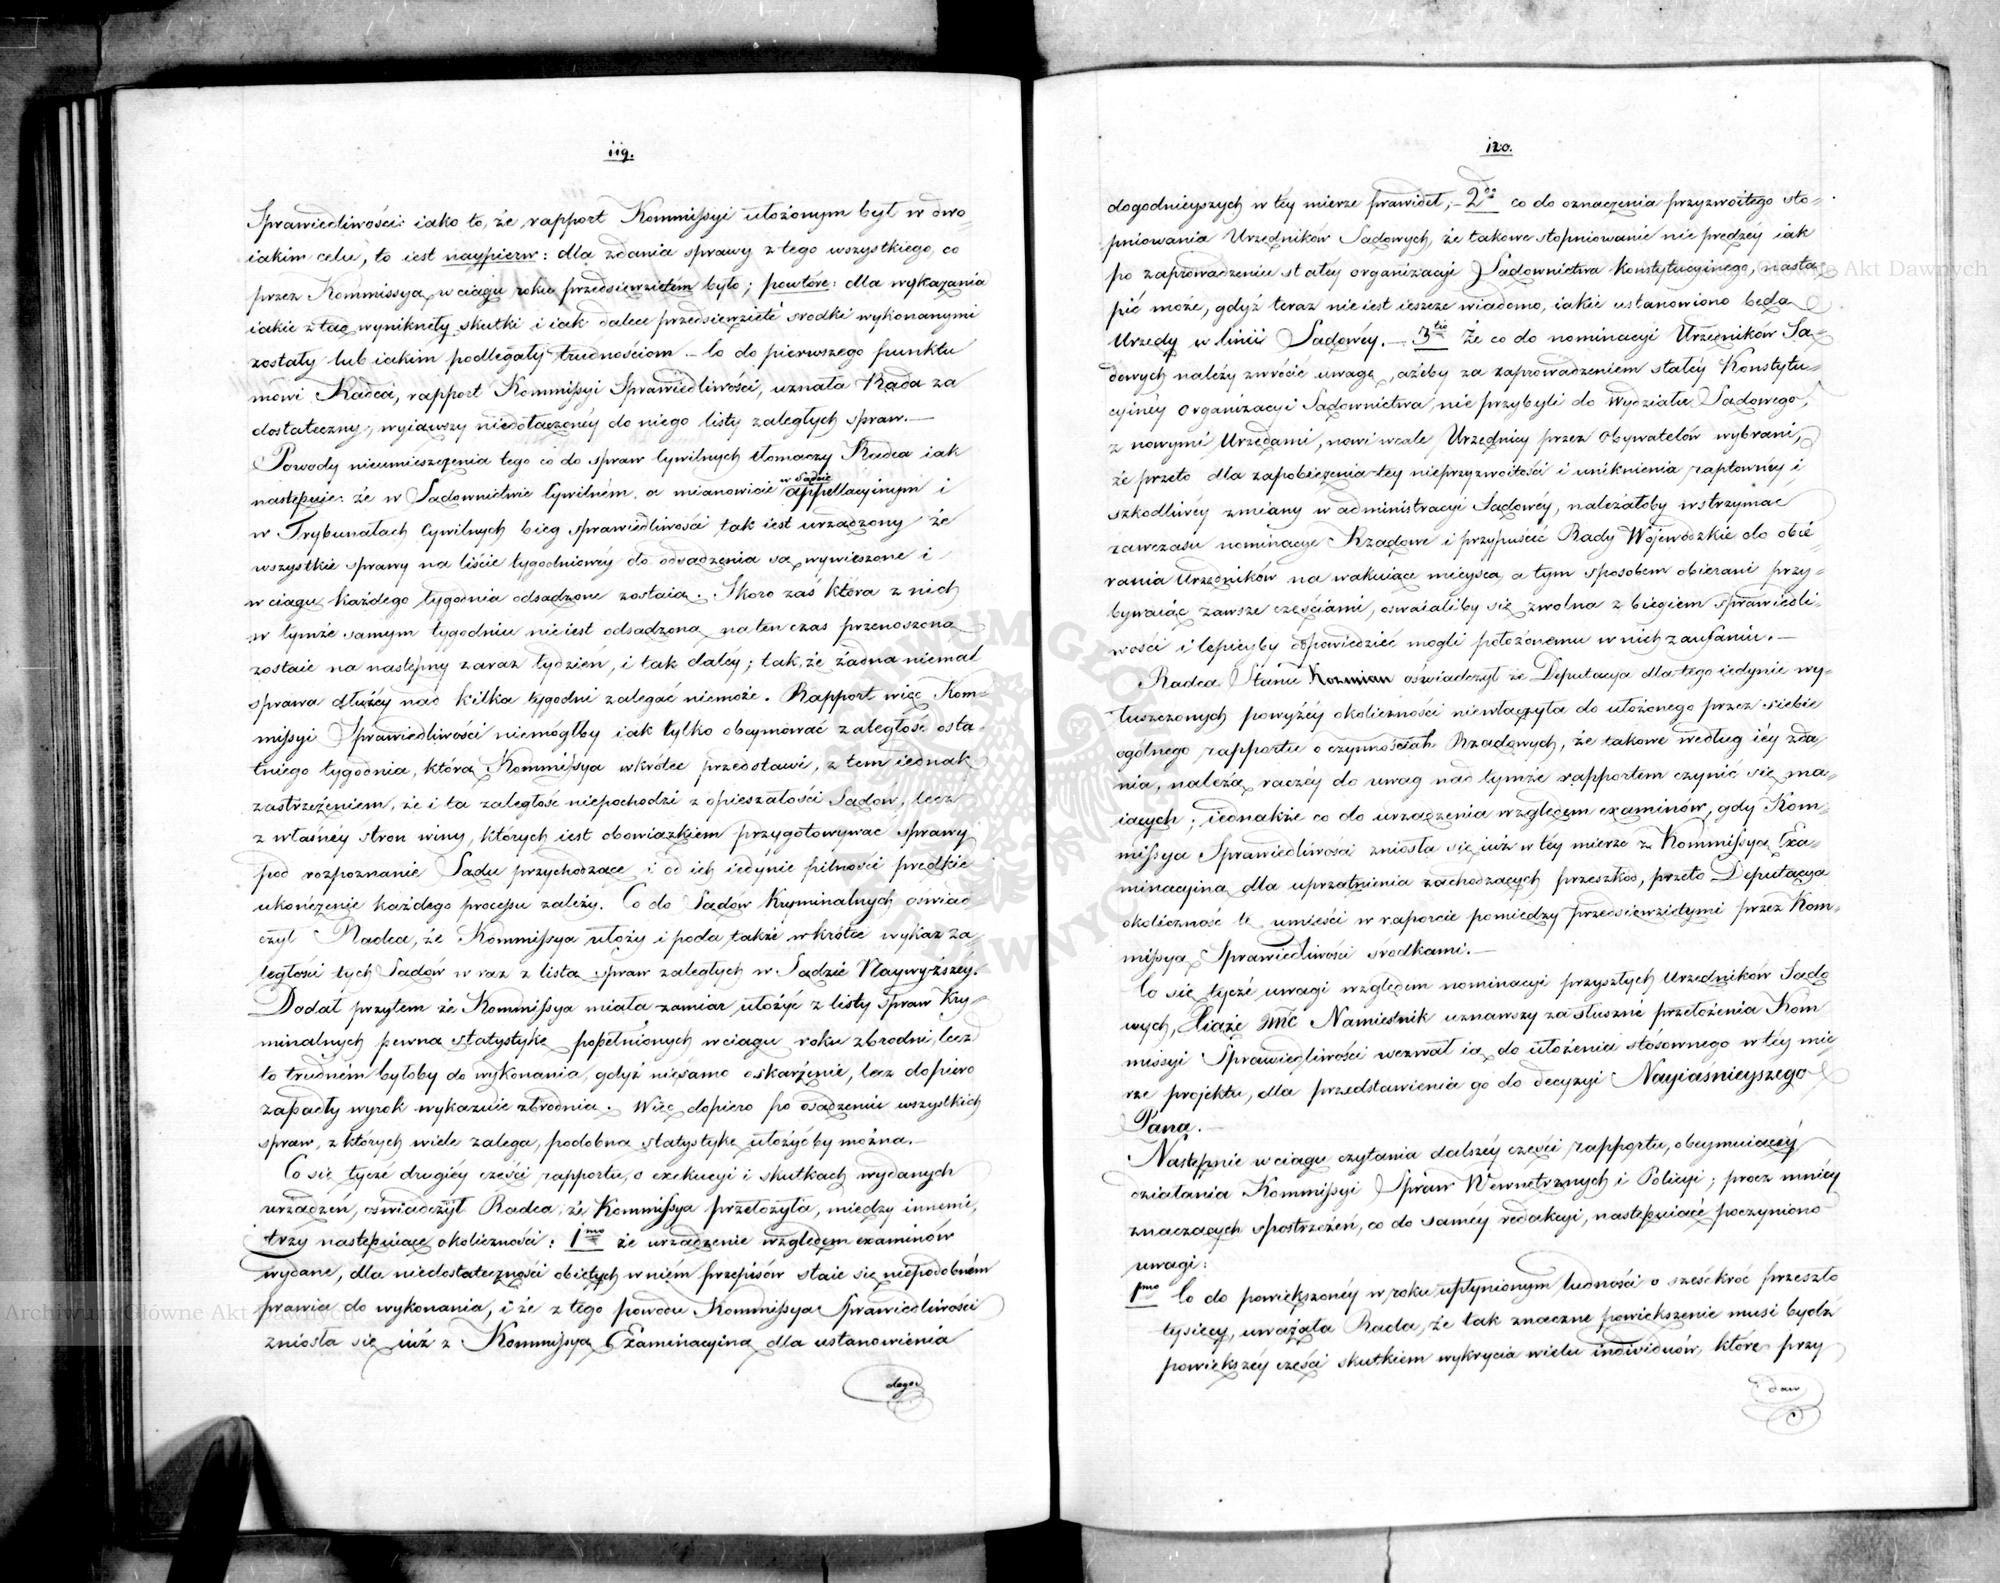 119.
Sprawiedliwości: iako to, że rapport Kommissyi ułożonym był w dwo-
iakim celu, to iest naypierw: dla zdania sprawy z tego wszystkiego, co
przez Kommissyą w ciągu roku przedsięwziętem było; powtóre: dla wykazania
iakie ztąd wyniknęły skutki i iak dalece przedsięwzięte srodki wykonanymi
zostały lub iakim podlegały trudnościom. – Co do pierwszego punktu
mówi Radca, rapport Kommissyi Sprawiedliwości, uznała Rada za
dostateczny, wyiąwszy niedołączonéy do niego listy zaległych spraw. —
Powody nieumieszczenia tego co do spraw Cywilnych tłomaczy Radca iak
następuie: że w Sądownictwie Cywilném, a mianowicie w Sądzie appellacyinym i
w Trybunałach Cywilnych bieg sprawiedliwości tak iest urządzony że
wszystkie sprawy na liście tygodniowéy do odsądzenia są wywieszone i
w ciągu każdego tygodnia odsądzone zostaią. Skoro zaś która z nich
w tymże samym tygodniu nie iest odsądzoną na ten czas przenoszoną
zostaie na następny zaraz tydzień, i tak daléy; tak, że żadna niemal
sprawa dłużéy nad kilka tygodni zalegać niemoże. Rapport więc Kom-
missyi Sprawiedliwości niemógłby iak tylko obeymować zaległość osta-
tniego tygodnia, którą Kommissya wkrótce przedstawi, z tem iednak
zastrzeżeniem, że i ta zaległość niepochodzi z opieszałości Sądów, lecz
z własney stron winy, których iest obowiązkiem przygotowywać sprawy
pod rozpoznanie Sądu przychodzące i od ich iedynie pilności prędkie
ukończenie każdego processu zależy. Co do Sądów Kryminalnych oswiad-
czył Radca, że Kommissya ułoży i poda także wkrótce wykaz za-
ległości tych Sądów w raz z listą spraw zaległych w Sądzie Naywyższéy.
Dodał przytem że Kommissya miała zamiar ułożyć z listy spraw Kry-
minalnych pewną statystykę popełnionych w ciągu roku zbrodni, lecz
to trudném byłoby do wykonania, gdyż nie samo oskarżenie, lecz dopiero
zapadły wyrok wykazuie zbrodnią. Więc dopiero po osądzeniu wszystkich
spraw, z których wiele zalega, podobną statystykę ułożyćby można. —
Co się tycze drugiéy części rapportu, o exekucyi i skutkach wydanych
urządzeń, oświadczył Radca, że Kommissya przełożyła, między innemi,
trzy następuiące okoliczności: 1mo że urządzenie względem examinów
wydane, dla niedostateczności obiętych w niém przepisów staie się niepodobném
prawie do wykonania, i że z tego powodu Kommissya Sprawiedliwości
zniosła się iuż z Kommissyą Examinacyiną dla ustanowienia
dogo
120.
dogodnieyszych w téy mierze prawideł; – 2do co do oznaczenia przyzwoitego sto-
pniowania Urzędników Sądowych, że takowe stopniowanie nie prędzéy iak
po zaprowadzeniu stałey organizacyi Sądownictwa Konstytucyinego, nastą-
pić może, gdyż teraz nie iest ieszcze wiadomo, iakie ustanowiono będą
Urzędy w linii Sądowéy. – 3tio że co do nominacyi Urzędników Są-
dowych należy zwrócić uwagę, ażeby za zaprowadzeniem stałéy Konstytu-
cyinéy organizacyi Sądownictwa, nie przybyli do Wydziału Sądowego,
z nowymi Urzędami, nowi wcale Urzędnicy przez Obywatelów wybrani,
że przeto dla zapobieżenia téy nieprzyzwoitości i uniknienia raptownéy i
szkodliwéy zmiany w administracyi Sądowéy, należałoby wstrzymać
zawczasu nominacye Rządowe i przypuścić Rady Wojewódzkie do obie-
rania Urzędników na wakuiące mieysca, a tym sposobem obierani przy-
bywaiąc zawsze częściami, oswaialiby się zwolna z biegiem sprawiedli-
wości i lepieyby odpowiedzieć mogli położonemu w nich zaufaniu. —
Radca Stanu Kozmian oświadczył że Deputacya dla tego iedynie wy-
łuszczonych powyżéy okoliczności niewłączyła do ułożonego przez siebie
ogólnego rapportu o czynnościach Rządowych, że takowe według iéy zda-
nia, należą raczéy do uwag nad tymże rapportem czynić się ma-
iących; iednakże co do urządzenia względem examinów, gdy Kom-
missya Sprawiedliwości zniosła się iuż w téy mierze z Kommissyą Exa-
minacyiną dla uprzątnienia zachodzących przeszkód, przeto Deputacya
okoliczność tę umieści w raporcie pomiędzy przedsięwziętymi przez Kom-
missyą Sprawiedliwości srodkami. —
Co się tycze uwagi względem nominacyi przyszłych Urzędników Sądo
wych, Xiąże Jmć Namiestnik uznawszy za słuszne przełożenia Kom
missyi Sprawiedliwości wezwał ią do ułożenia stósownego w téy mie
rze projektu, dla przedstawienia go do decyzyi Nayiaśnieyszego
Pana. —
Następnie w ciągu czytania dalszéy części rapportu, obeymuiącéy
działania Kommissyi Spraw Wewnętrznych i Policyi; prócz mniéy
znaczących spostrzeżeń, co do saméy redakcyi, następuiące poczyniono
uwagi:
1mo Co do powiększonéy w roku upłynionym ludności o sześćkroć przeszło
tysięcy, uważała Rada, że tak znaczne powiększenie musi bydź
powiększéy części skutkiem wykrycia wielu individuów, które przy
daw
Archiwum Główne Akt Dawnych
Archiwum Główne Akt Dawnych